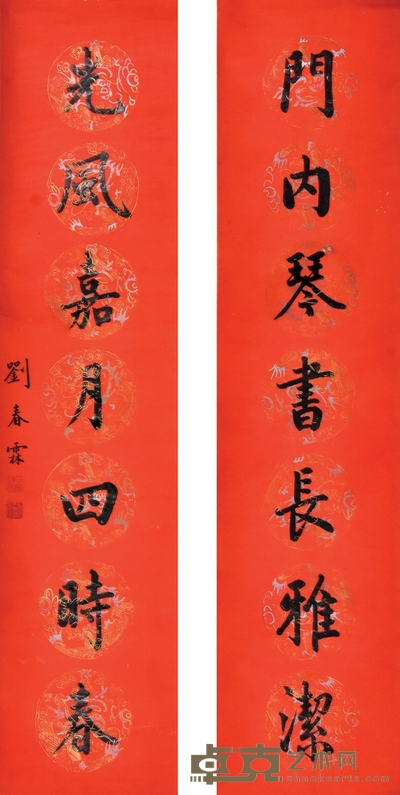 門内琴書長雅潔
光風嘉月四時春
劉春霖
卓克艺术网